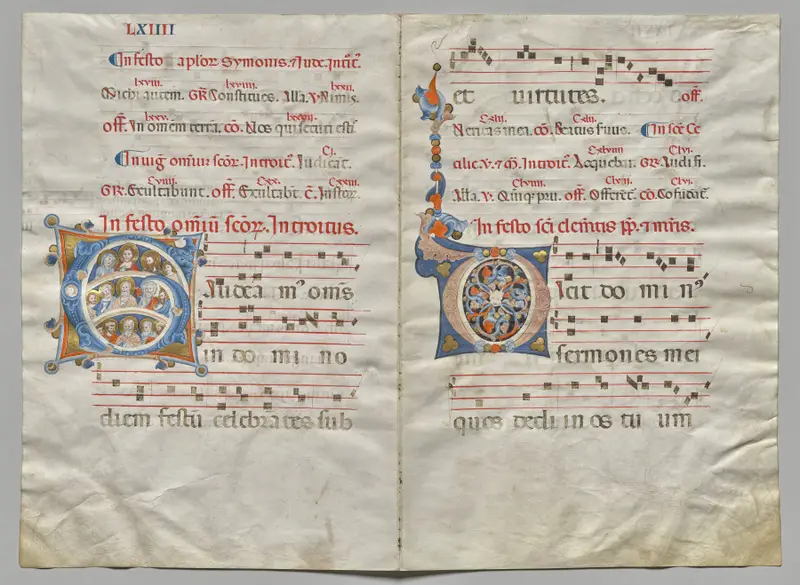 LXIIII
In festo aplor Symonis. Jude. Intit.
lxviii. lxviiii. lxxii.
Michi autem. GR. Constitues. Alla. V. Nimis.
lxxv. lxxvii.
off. In omem terra. co. Vos qui secuti estis
C.
In uig omiu scor. Introit. Judicat.
Cviiii. Cxx. Cxxiii.
GR. Exultabunt. off. Exultabt. C. Justor.
In festo omiu scor. Introitus.
audea m omis
in do mi no
diem festu celebrates sub
et uirtutes. off.
Ciiii. Ciii.
co. Beatus seruus. In sce Ce
Cxlviiii. Clvi.
cilie. V. Introit. Loquebar. GR. Audi fi.
Clviiii. Clviii. Clvi.
Alla. V. Quinq pru. off. Offeret. co. Cofudat.
In festo sci clemetis pp. mris.
icit do mi n
sermones mei
quos dedi in os tu um